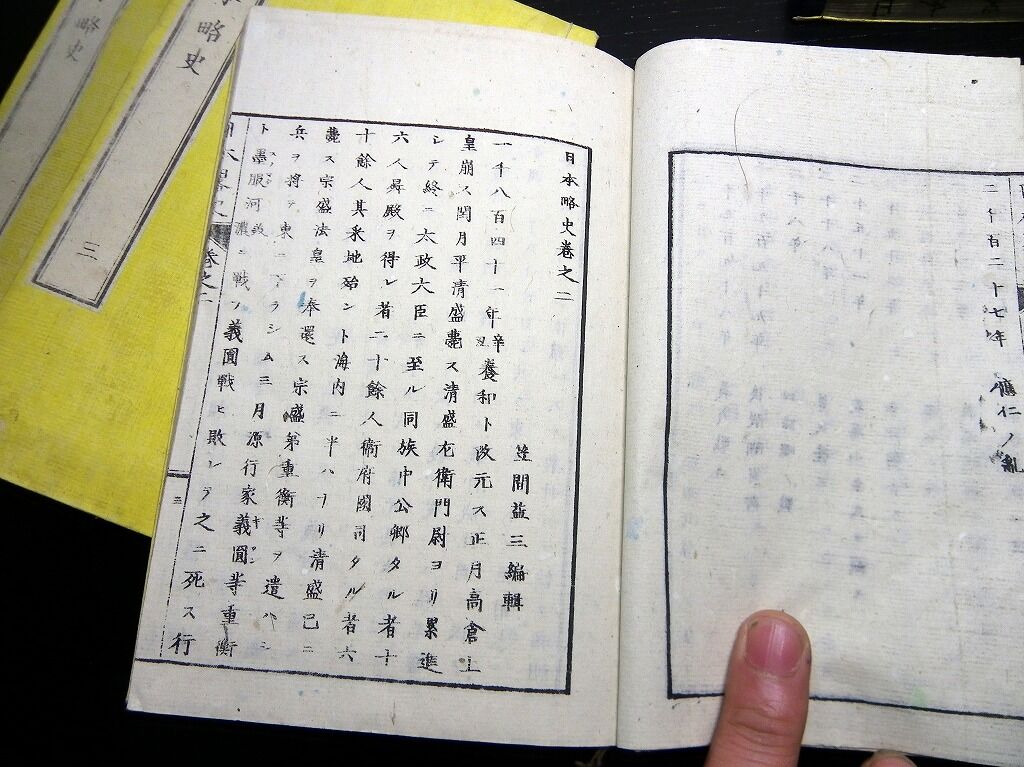 二千百二十七年 應仁ノ亂
日本略史卷之二
笠間益三編輯
一千八百四十一年辛丑養和ト改元ス正月高倉上
皇崩ス閏月平清盛薨ス清盛左衛門尉ヨリ累進
シテ終ニ太政大臣ニ至ル同族中公卿タル者十
六人昇殿ヲ得ル者二十餘人衞府國司タル者六
十餘人其采地殆ント海内ニ半ハナリ清盛已ニ
薨ス宗盛法皇ヲ奉還ス宗盛弟重衡等ヲ遣ハシ
兵ヲ將テ東ニ下ラシム三月源行家義圓等重衡
ト墨股河美濃ニ戰フ義圓戰ヒ敗レテ之ニ死ス行
日本略史 卷之二
略史
三
略史